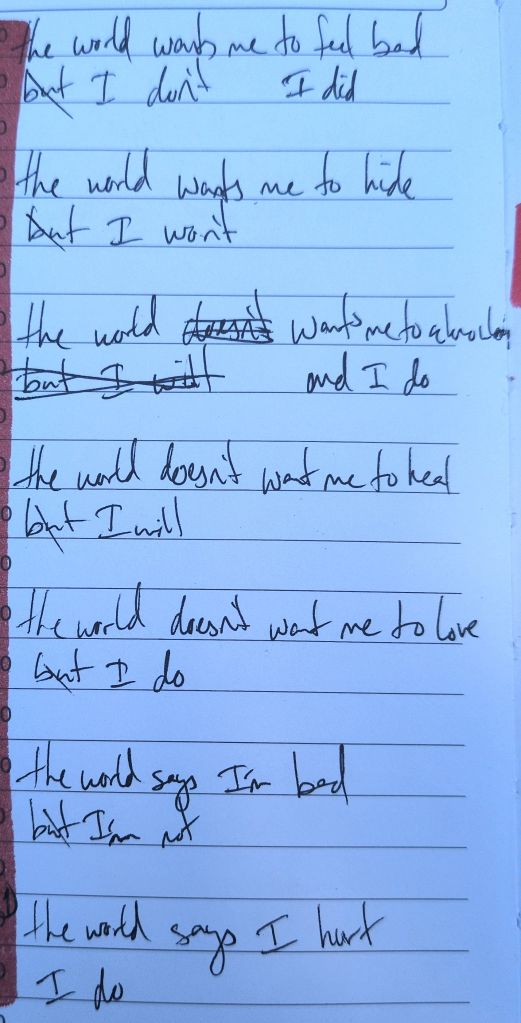 the world wants me to feel bad
but I don't I did
the world wants me to hide
but I won't
the world doesn't wants me to
but I will and I do
the world doesn't want me to heal
but I will
the world doesn't want me to love
but I do
the world says I'm bad
but I'm not
the world says I hurt
I do